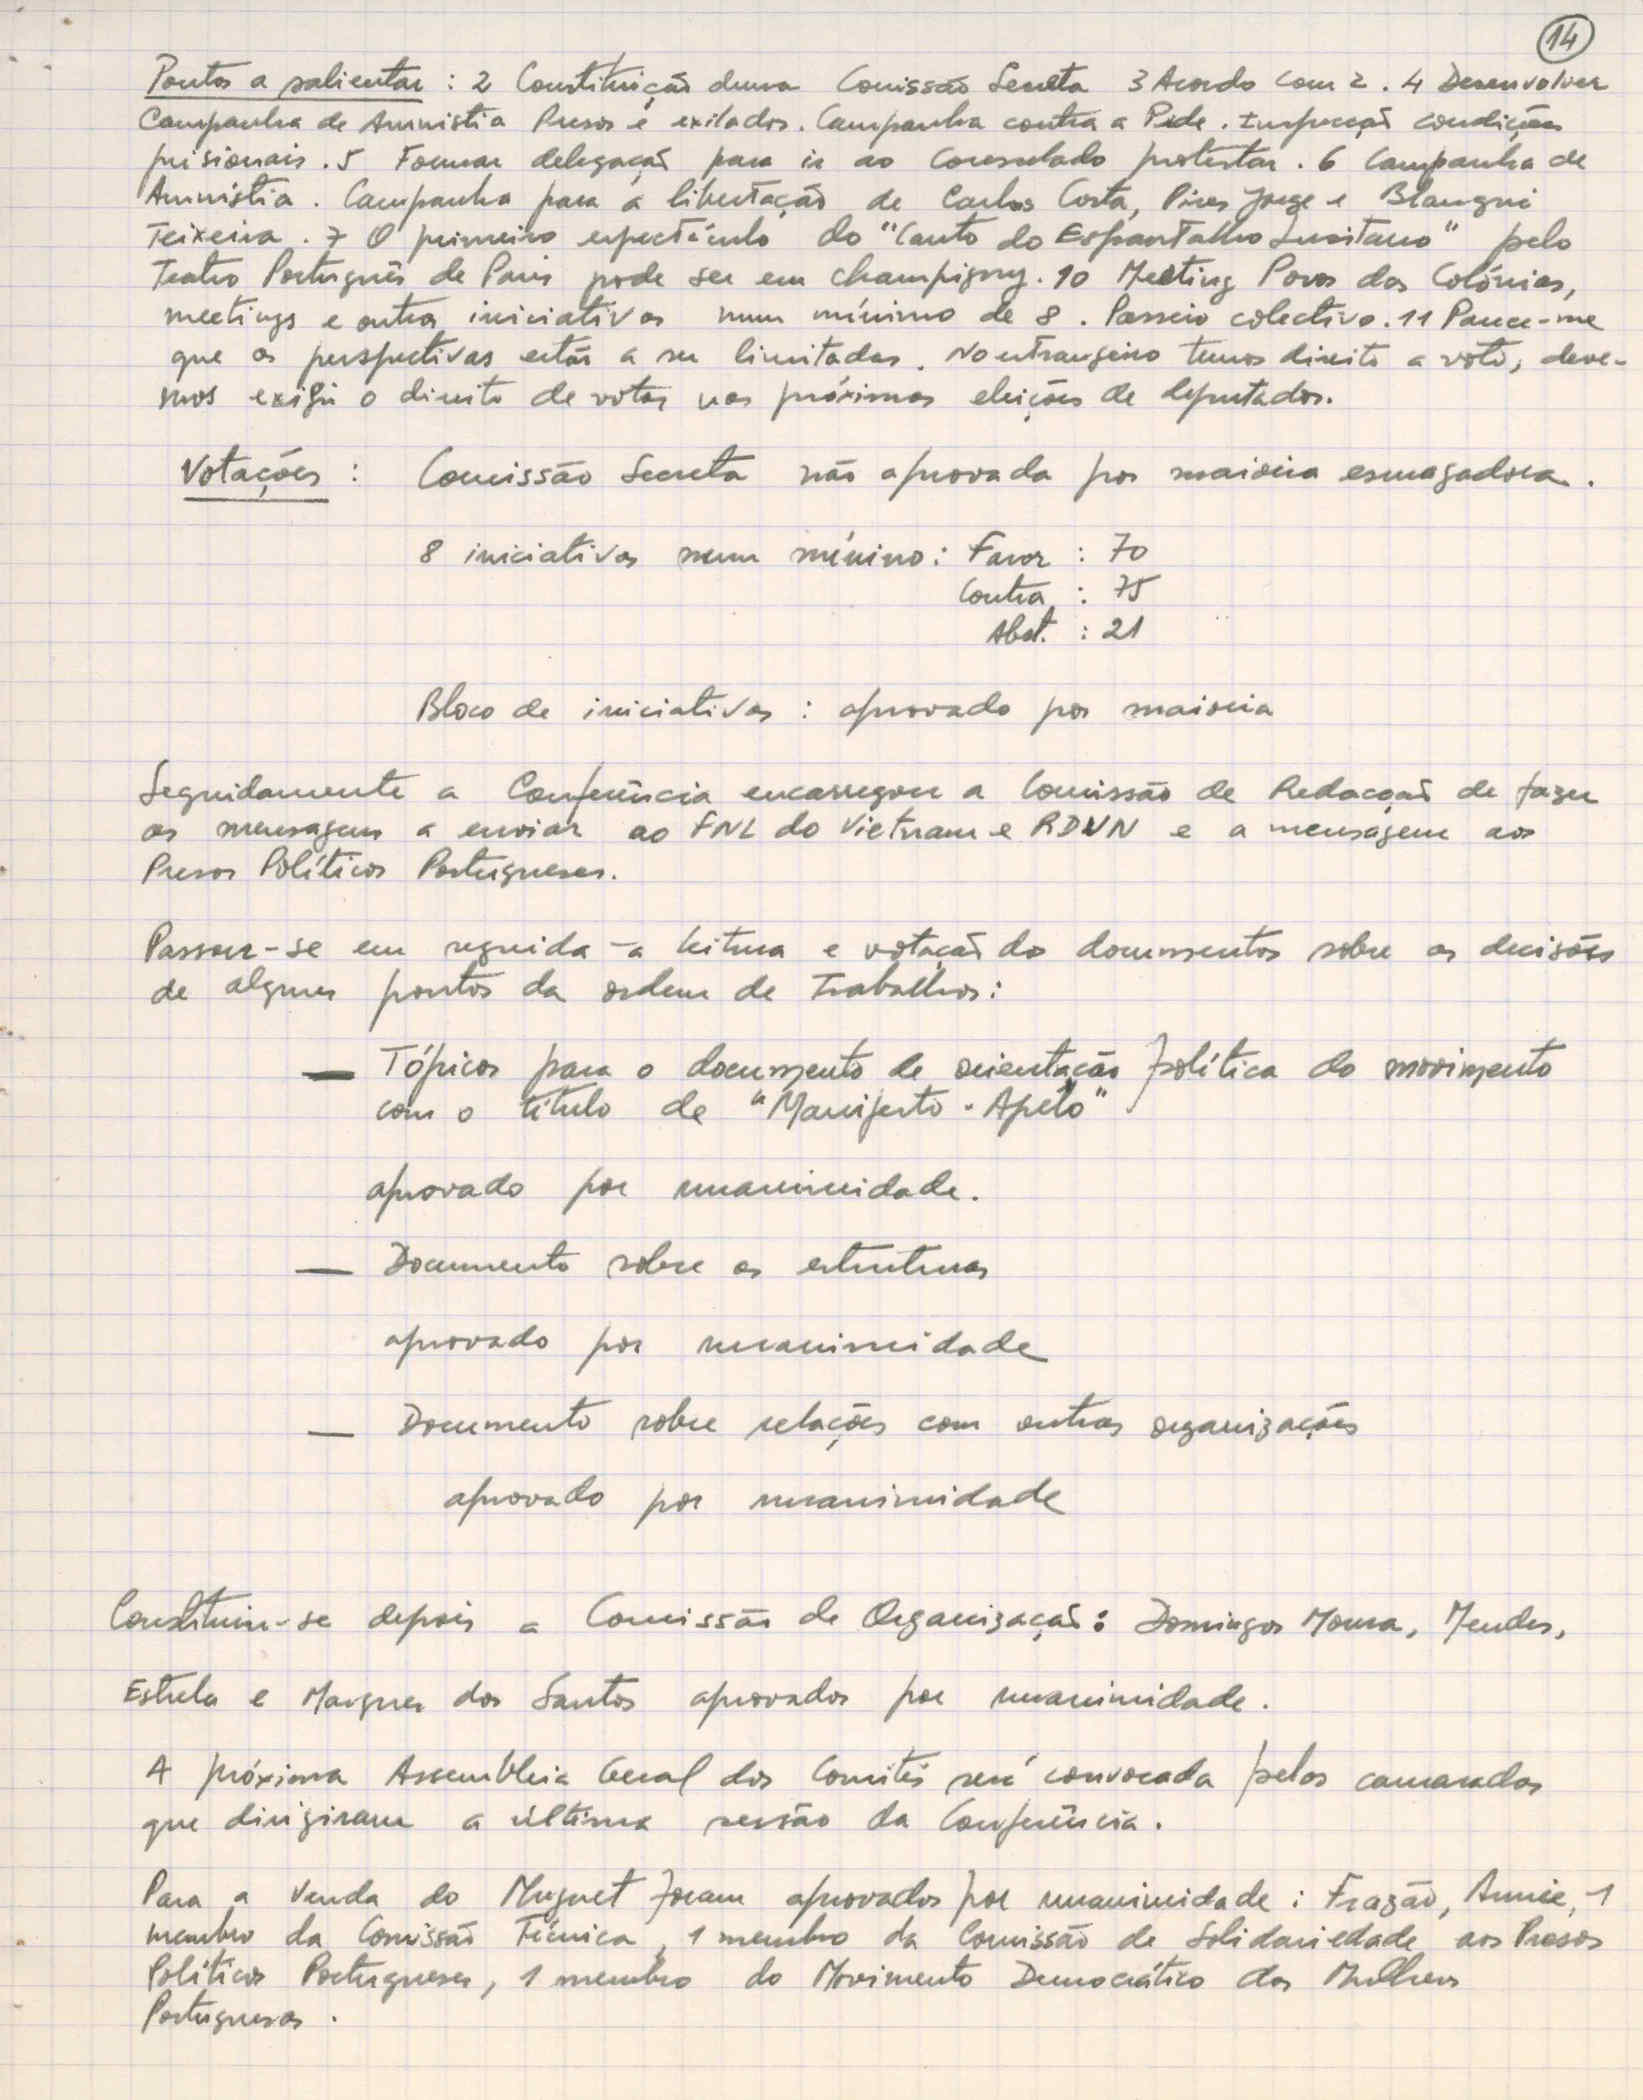 14
Pontos a salientar : 2 Constituição duma Comissão Secreta 3 Acordo com 2. 4 Desenvolver
Campanha de Amnistia Presos e exilados. Campanha contra a Pide. Inspecção condições
prisionais. 5 Formar delegação para ir ao Consulado protestar. 6 Campanha de
Amnistia. Campanha para a libertação de Carlos Costa, Pires Jorge e Blanqui
Teixeira. 7 O primeiro espectáculo do "Canto do Espantalho Lusitano" pelo
Teatro Português de Paris pode ser em Champigny. 10 Meeting Povos das Colónias,
meetings e outras iniciativas num mínimo de 8. Passeio colectivo. 11 Parece-me
que as perspectivas estão a ser limitadas. No estrangeiro temos direito a voto, deve-
mos exigir o direito de votar nas próximas eleições de deputados.
Votações : Comissão Secreta não aprovada por maioria esmagadora.
8 iniciativas num mínimo : Favor : 70
Contra : 75
Abst. : 21
Bloco de iniciativas : aprovado por maioria
Seguidamente a Conferência encarregou a Comissão de Redacção de fazer
as mensagens a enviar ao FNL do Vietnam e RDVN e a mensagem aos
Presos Políticos Portugueses.
Passou-se em seguida à leitura e votação do documentos sobre as decisões
de alguns pontos da ordem de Trabalhos :
— Tópicos para o documento de orientação política do movimento
com o título de "Manifesto - Apelo"
aprovado por unanimidade.
— Documento sobre as estruturas
aprovado por unanimidade
— Documento sobre relações com outras organizações
aprovado por unanimidade
Constituiu-se depois a Comissão de Organização : Domingos Moura, Mendes,
Estrela e Marques dos Santos aprovados por unanimidade.
A próxima Assembleia Geral dos Comités será convocada pelos camaradas
que dirigiram a última sessão da Conferência.
Para a Venda do Muguet foram aprovados por unanimidade : Frazão, Annie, 1
membro da Comissão Técnica, 1 membro da Comissão de Solidariedade aos Presos
Políticos Portugueses, 1 membro do Movimento Democrático das Mulheres
Portuguesas.